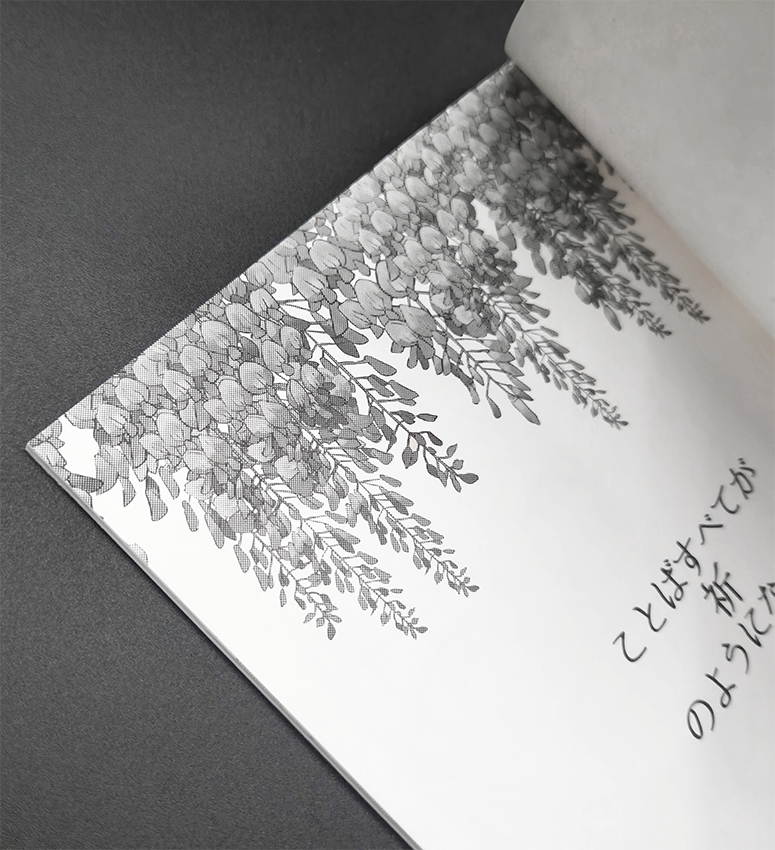 ことばすべてが
祈
のようにな